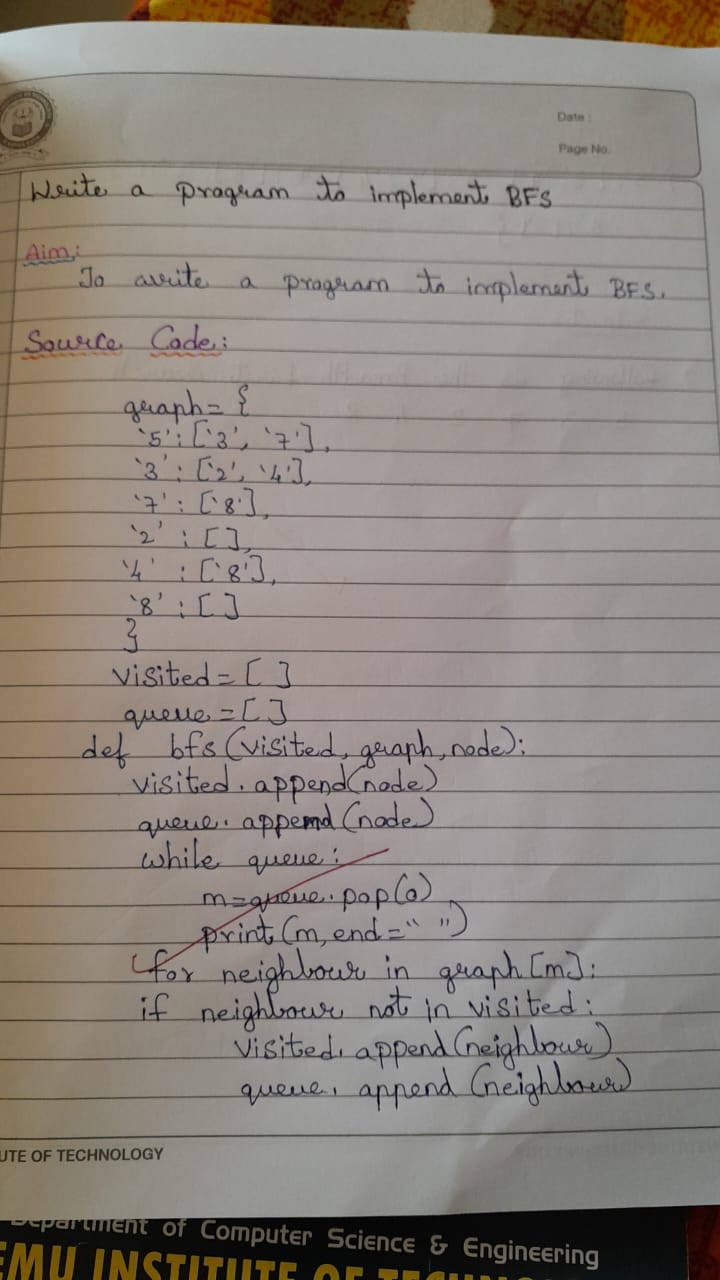 Date :
Page No.
Write a program to implement BFS
Aim:
To write a program to implement BFS.
Source Code:
graph= {
'5': ['3', '7'],
'3': ['2', '4'],
'7': ['8'],
'2' : [ ],
'4' : ['8'],
'8' : [ ]
}
visited = [ ]
queue = [ ]
def bfs (visited, graph, node):
visited. append(node)
queue. append (node)
while queue:
m=queue.pop(0)
print(m, end=" ")
for neighbour in graph [m]:
if neighbour not in visited:
visited. append (neighbour)
queue. append (neighbour)
UTE OF TECHNOLOGY
Department of Computer Science & Engineering
EMU INSTITUTE OF